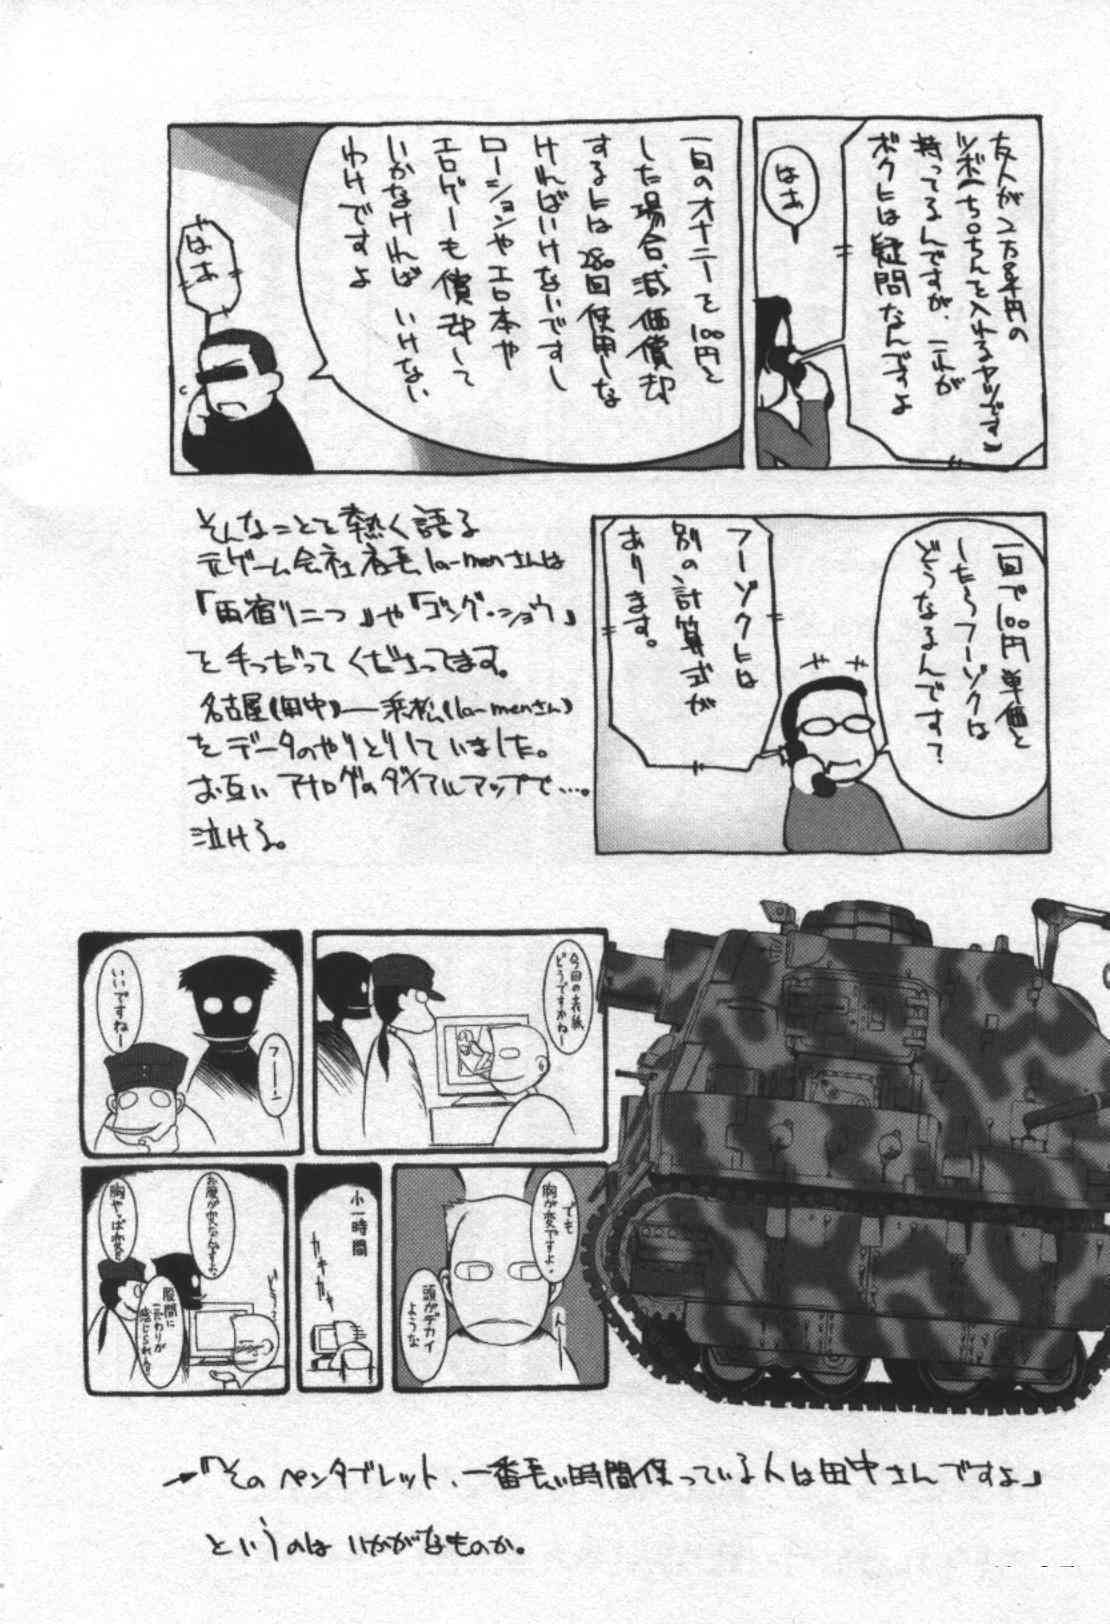 友人が2万8千円の
ツボ(ちんちんを入れるヤツです)
持ってるんですが、それが
ボクには疑問なんですよ
はぁ
一回のオナニーを100円と
した場合、減価償却
するには280回使用しな
ければいけないですし
ローションやエロ本や
エロゲーも償却して
いかなければいけない
わけですよ
はぁ
一回で100円単価と
したらフーゾクは
どうなるんです?
フーゾクには
別の計算式が
あります。
そんなことを熱く語る
元ゲーム会社店長la-menさんは
『西宿りニつ』や『ゴング・ショウ』
を手つだってくださってます。
名古屋(田中)―乗松(la-menさん)
をデータのやりとりしていました。
お互いアナログのダイアルアップで…。
泣ける。
今回の表紙
どうですかねー
いいですねー
フーーン
でも
胸が変ですよ。
んー
頭がデカイ
ような
小一時間
カキカキ
お尻が変なんすよ。
胸やっぱ変
股間に
こだわりが
感じられん。
→「そのペンタブレット、一番長い時間使っている人は田中さんですよ」
というのはいかがなものか。